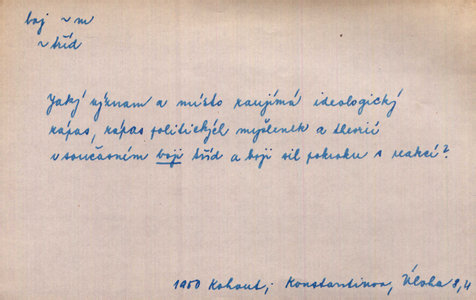 boj ~ m
~ tříd
Jaký význam a místo zaujímá ideologický
zápas, zápas politických myšlenek a theorií
v současném boji tříd a boji sil pokroku s reakcí?
1950 Kohout; Konstantinov, Úloha 8,4